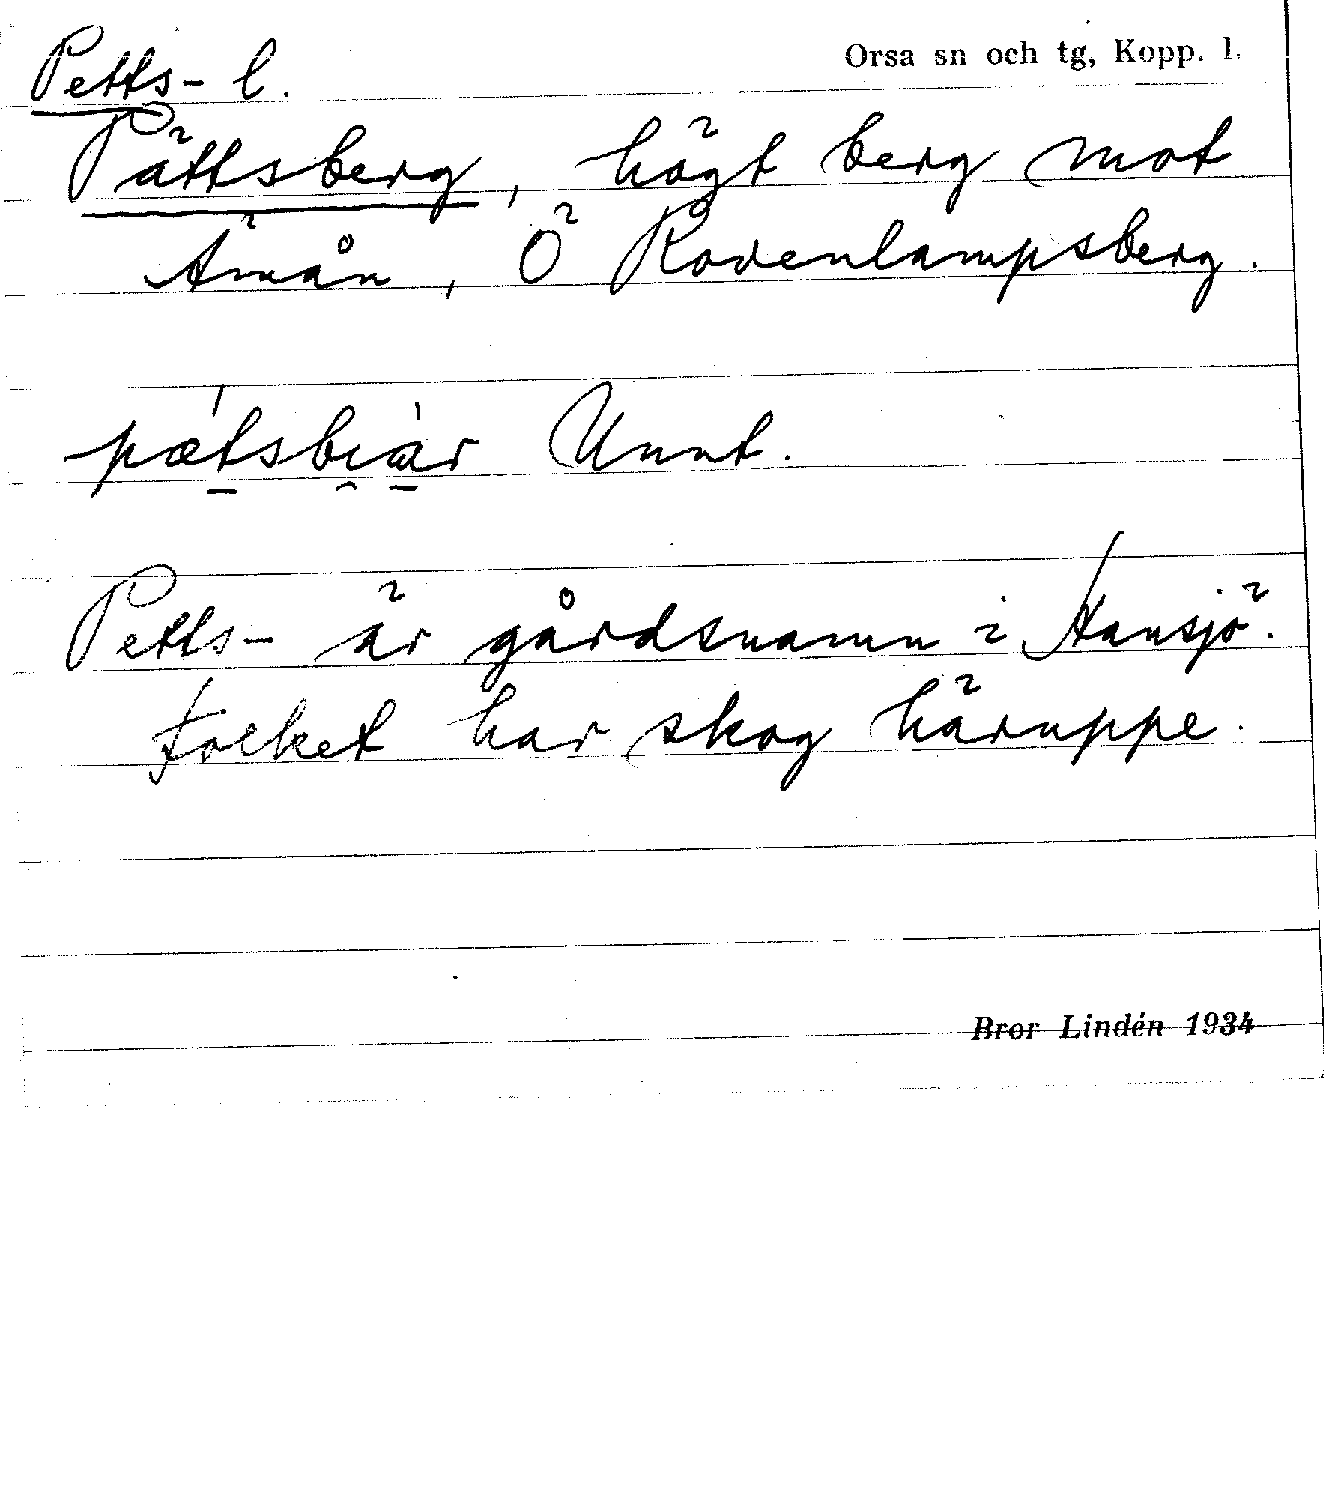 Petts- l.
Orsa sn och tg, Kopp. l.
Pättsberg, högt berg mot
Ämån, Ö Rovenlampsberg.
pætsbiàr Unnt.
Petts- är gårdsnamn i Hansjö.
Folket har skog häruppe.
Bror Lindén 1934